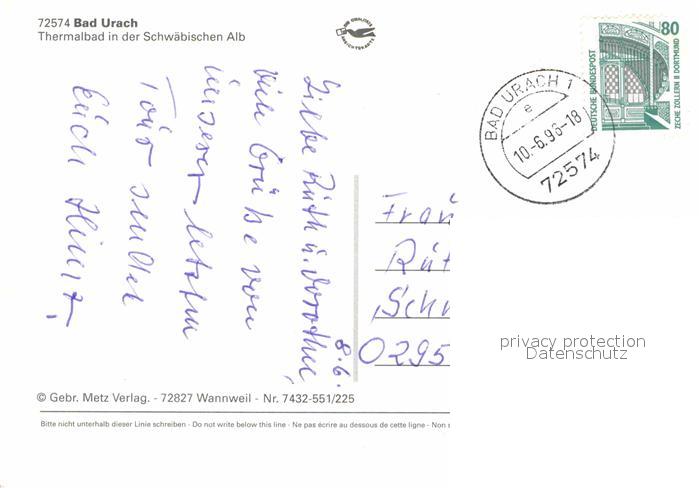 72574 Bad Urach
Thermalbad in der Schwäbischen Alb
80
DEUTSCHE BUNDESPOST
ZECHE ZOLLERN II DORTMUND
BAD URACH 1
e
10.-6.96-18
72574
8.6.
Liebe Ruth u. Dorothee,
viele Grüße von
unserer letzten
Tour sendet
Euch Horst.
Frau
Rut
Schn
0295
privacy protection
Datenschutz
© Gebr. Metz Verlag. - 72827 Wannweil - Nr. 7432-551/225
Bitte nicht unterhalb dieser Linie schreiben - Do not write below this line - Ne pas écrire au dessous de cette ligne - Non s